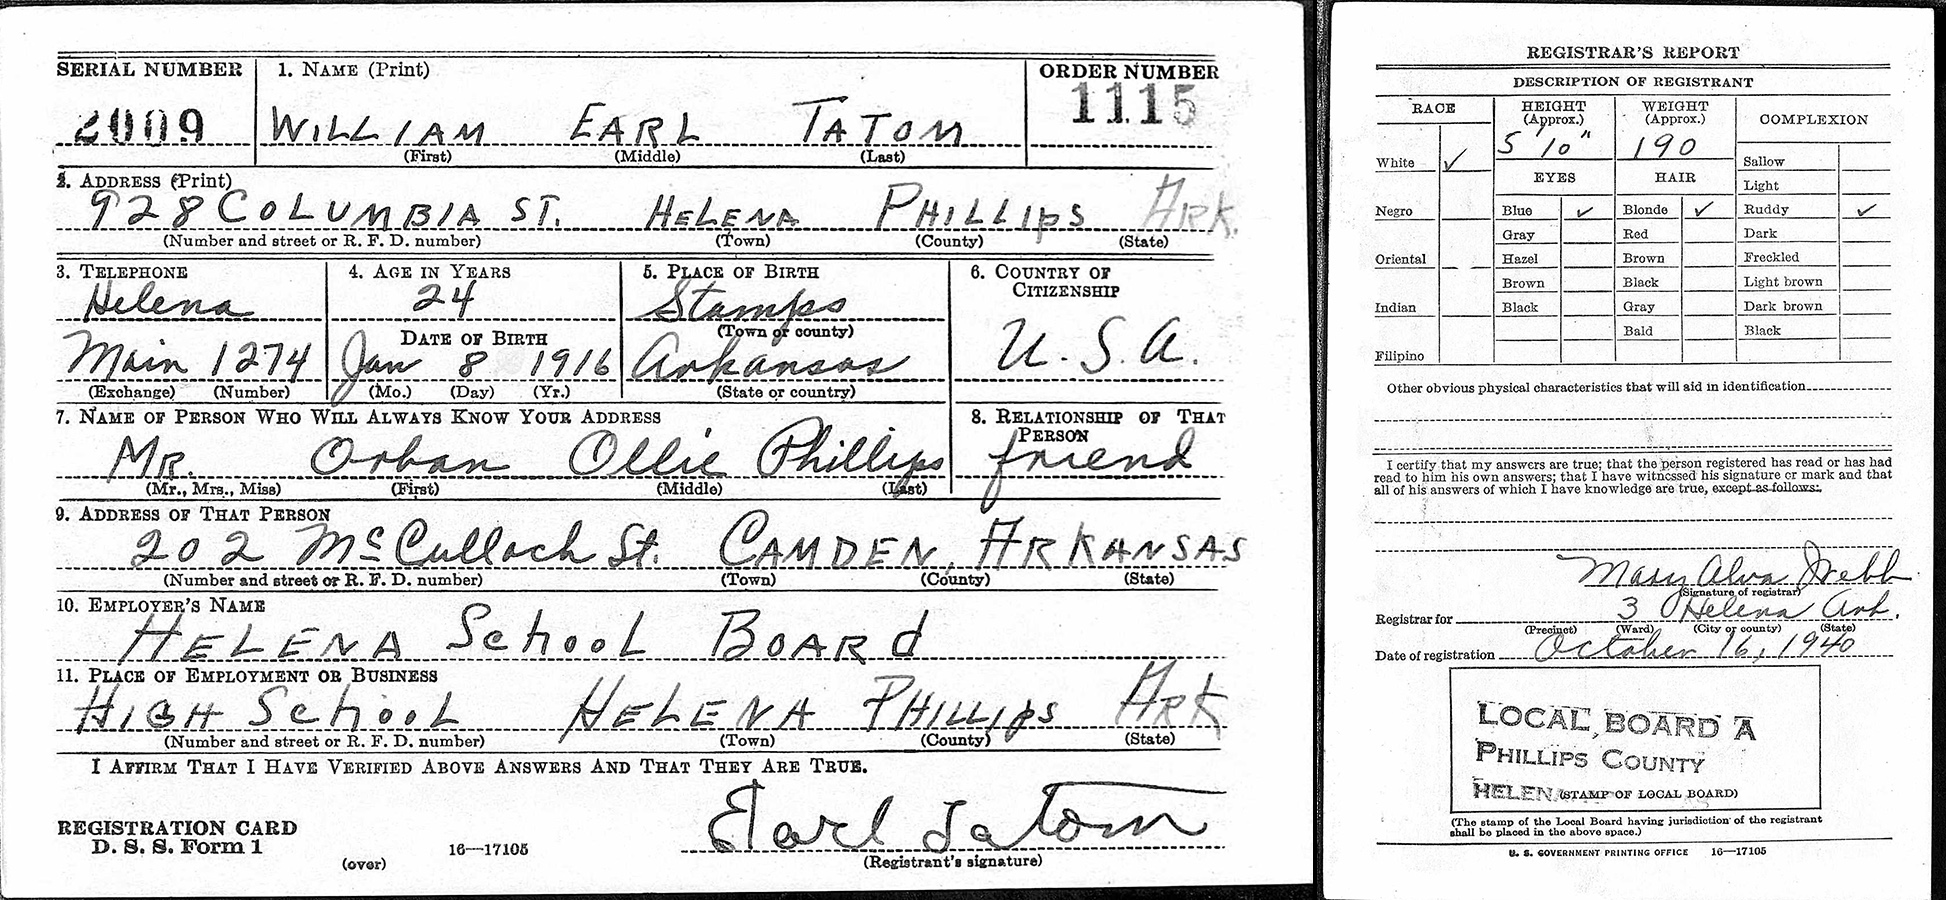 SERIAL NUMBER 1. NAME (Print) ORDER NUMBER
2009 WILLIAM EARL TATOM 1115
(First) (Middle) (Last)
2. ADDRESS (Print)
928 COLUMBIA ST. HELENA PHILLIPS ARK.
(Number and street or R. F. D. number) (Town) (County) (State)
3. TELEPHONE 4. AGE IN YEARS 5. PLACE OF BIRTH 6. COUNTRY OF CITIZENSHIP
Helena 24 Stamps
(Town or county)
DATE OF BIRTH U.S.A.
Main 1274 Jan 8 1916 Arkansas
(Exchange) (Number) (Mo.) (Day) (Yr.) (State or country)
7. NAME OF PERSON WHO WILL ALWAYS KNOW YOUR ADDRESS 8. RELATIONSHIP OF THAT PERSON
MR. Orban Ollie Phillips friend
(Mr., Mrs., Miss) (First) (Middle) (Last)
9. ADDRESS OF THAT PERSON
202 McCulloch St. CAMDEN, ARKANSAS
(Number and street or R. F. D. number) (Town) (County) (State)
10. EMPLOYER'S NAME
HELENA School BOARd
11. PLACE OF EMPLOYMENT OR BUSINESS
HIGH School HELENA PHILLIPS ARK
(Number and street or R. F. D. number) (Town) (County) (State)
I AFFIRM THAT I HAVE VERIFIED ABOVE ANSWERS AND THAT THEY ARE TRUE.
Earl Tatom
REGISTRATION CARD
D. S. S. Form 1 16—17105
(over) (Registrant's signature)
REGISTRAR'S REPORT
DESCRIPTION OF REGISTRANT
RACE HEIGHT (Approx.) WEIGHT (Approx.) COMPLEXION
5' 10" 190
White ✓ Sallow
EYES HAIR Light
Negro Blue ✓ Blonde ✓ Ruddy ✓
Gray Red Dark
Oriental Hazel Brown Freckled
Brown Black Light brown
Indian Black Gray Dark brown
Bald Black
Filipino
Other obvious physical characteristics that will aid in identification
I certify that my answers are true; that the person registered has read or has had
read to him his own answers; that I have witnessed his signature or mark and that
all of his answers of which I have knowledge are true, except as follows:
Mary Alva Webb
(Signature of registrar)
Registrar for 3 Helena Ark.
(Precinct) (Ward) (City or county) (State)
Date of registration October 16, 1940
LOCAL BOARD A
PHILLIPS COUNTY
HELENA (STAMP OF LOCAL BOARD)
(The stamp of the Local Board having jurisdiction of the registrant
shall be placed in the above space.)
U. S. GOVERNMENT PRINTING OFFICE 16—17105